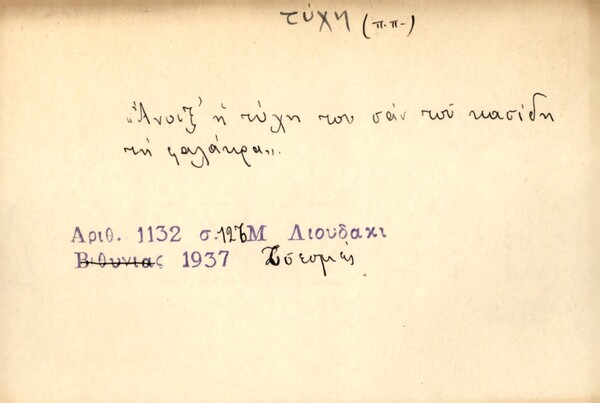 τύχη (π.π.)
«Ἄνοιξ' ἡ τύχη του σάν τοῦ κασίδη
τή φαλάκρα».
Αριθ. 1132 σ. 126 Μ Λιουδακι
Βιθυνιας 1937 Τσεσμές